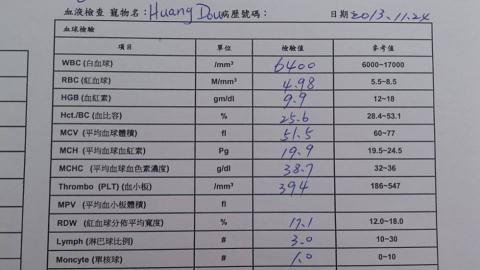 血液檢查 寵物名：Huang Dou 病歷號碼： 日期 2013.11.24
血球檢驗
項目 單位 檢驗值 參考值
WBC (白血球) /mm³ 6400 6000~17000
RBC (紅血球) M/mm³ 4.98 5.5~8.5
HGB (血紅素) gm/dl 9.9 12~18
Hct./BC (血比容) % 25.6 28.4~53.1
MCV (平均血球體積) fl 51.5 60~77
MCH (平均血球血紅素) Pg 19.9 19.5~24.5
MCHC (平均血球血色素濃度) g/dl 38.7 32~36
Thrombo (PLT) (血小板) /mm³ 394 186~547
MPV (平均血小板體積) fl
RDW (紅血球分佈平均寬度) % 17.1 12.0~18.0
Lymph (淋巴球比例) # 3.0 10~30
Moncyte (單核球) # 1.0 0~10